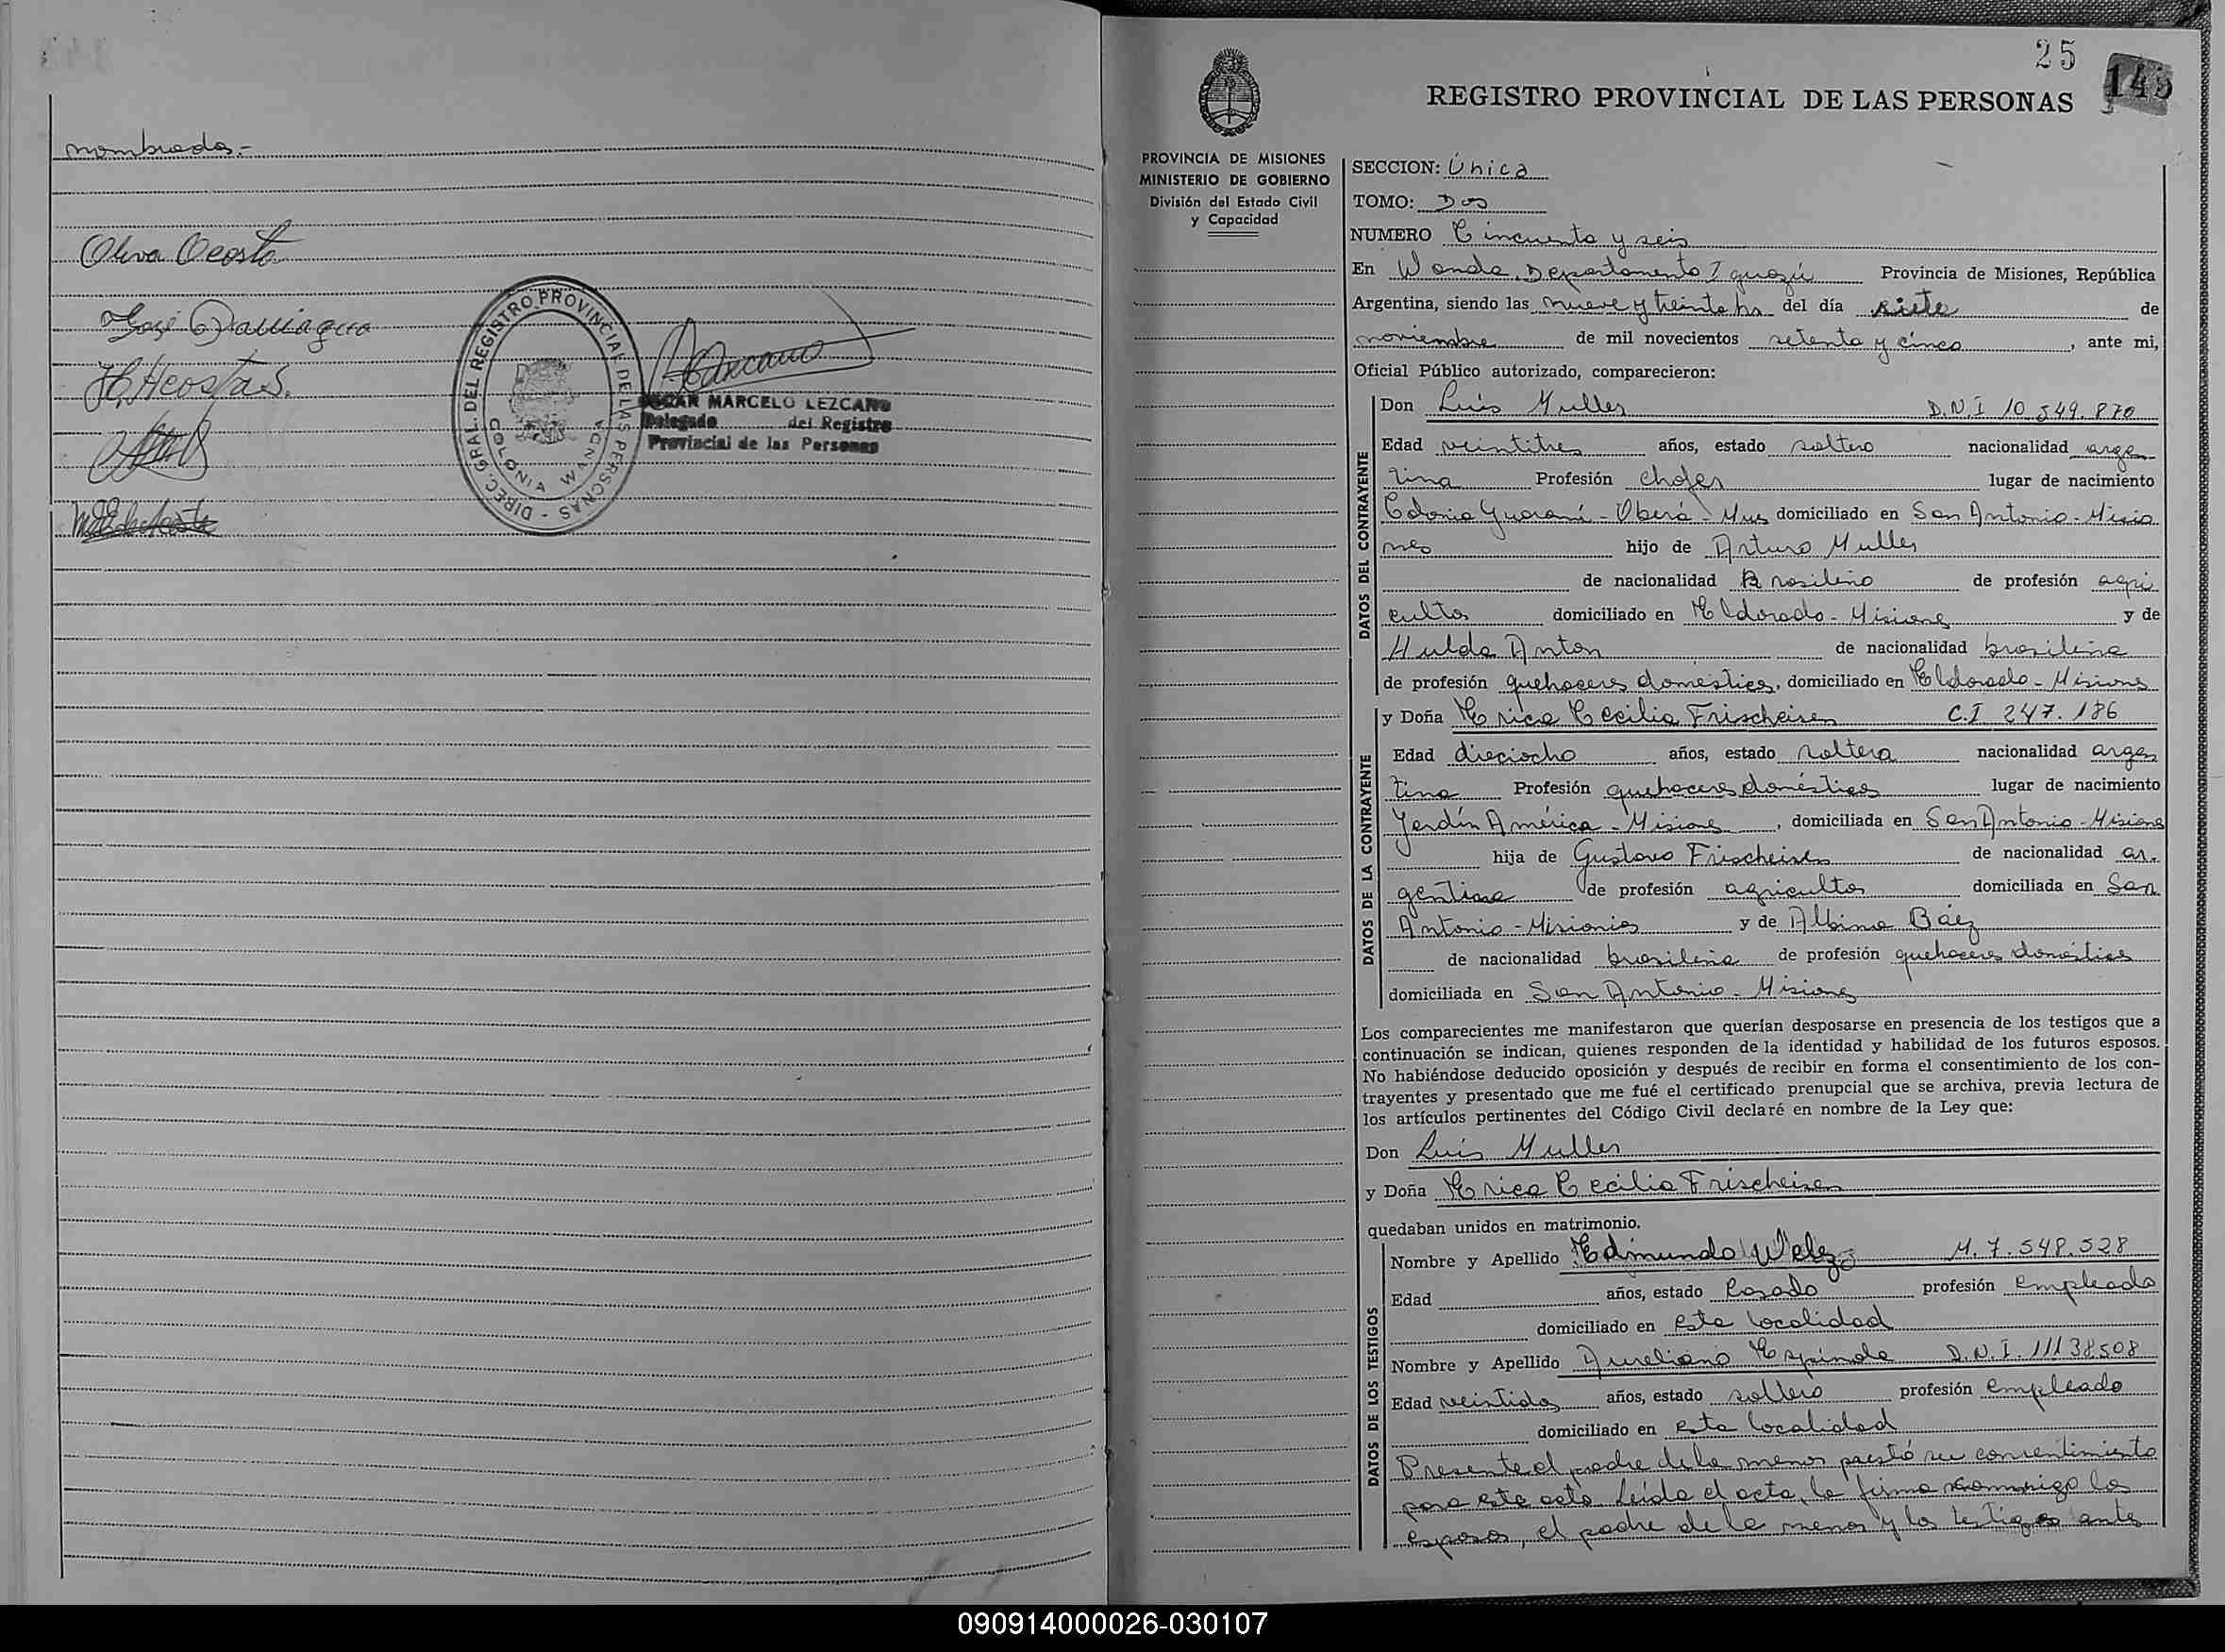 nombrados.-
Oliva Acosta
José Paniagua
H. Acosta S.
DIREC. GRAL. DEL REGISTRO PROVINCIAL DE LAS PERSONAS -
COLONIA WANDA
OSCAR MARCELO LEZCANO
Delegado del Registro
Provincial de las Personas
25
145
REGISTRO PROVINCIAL DE LAS PERSONAS
PROVINCIA DE MISIONES
MINISTERIO DE GOBIERNO
División del Estado Civil
y Capacidad
SECCION: Única
TOMO: Dos
NUMERO Cincuenta y seis
En Wanda, Departamento Iguazú Provincia de Misiones, República
Argentina, siendo las nueve y treinta hs del día siete de
noviembre de mil novecientos setenta y cinco, ante mi,
Oficial Público autorizado, comparecieron:
DATOS DEL CONTRAYENTE
Don Luis Muller D.N.I 10.549.870
Edad veintitres años, estado soltero nacionalidad argen
tina Profesión chofer lugar de nacimiento
Colonia Guaraní - Oberá - Mnes domiciliado en San Antonio - Misio
nes hijo de Arturo Muller
de nacionalidad Brasileño de profesión agri
cultor domiciliado en Eldorado - Misiones y de
Hulda Anton de nacionalidad brasileña
de profesión quehaceres domésticos, domiciliado en Eldorado - Misiones
DATOS DE LA CONTRAYENTE
y Doña Erica Cecilia Frischeisen C.I 247.186
Edad dieciocho años, estado soltera nacionalidad argen
tina Profesión quehaceres domésticos lugar de nacimiento
Jardín América - Misiones, domiciliada en San Antonio - Misiones
hija de Gustavo Frischeisen de nacionalidad ar.
gentina de profesión agricultor domiciliada en San
Antonio - Misiones y de Albina Báez
de nacionalidad brasileña de profesión quehaceres domésticos
domiciliada en San Antonio - Misiones
Los comparecientes me manifestaron que querían desposarse en presencia de los testigos que a
continuación se indican, quienes responden de la identidad y habilidad de los futuros esposos.
No habiéndose deducido oposición y después de recibir en forma el consentimiento de los con-
trayentes y presentado que me fué el certificado prenupcial que se archiva, previa lectura de
los artículos pertinentes del Código Civil declaré en nombre de la Ley que:
Don Luis Muller
y Doña Erica Cecilia Frischeisen
quedaban unidos en matrimonio.
DATOS DE LOS TESTIGOS
Nombre y Apellido Edmundo Velez M. 7.548.528
Edad años, estado Casado profesión empleado
domiciliado en esta localidad
Nombre y Apellido Aureliano Espinola D.N.I. 11138508
Edad veintidos años, estado soltero profesión empleado
domiciliado en esta localidad
Presente el padre de la menor prestó su consentimiento
para este acto. Leída el acta, la firma conmigo los
esposos, el padre de la menor y los testigos antes
090914000026-030107